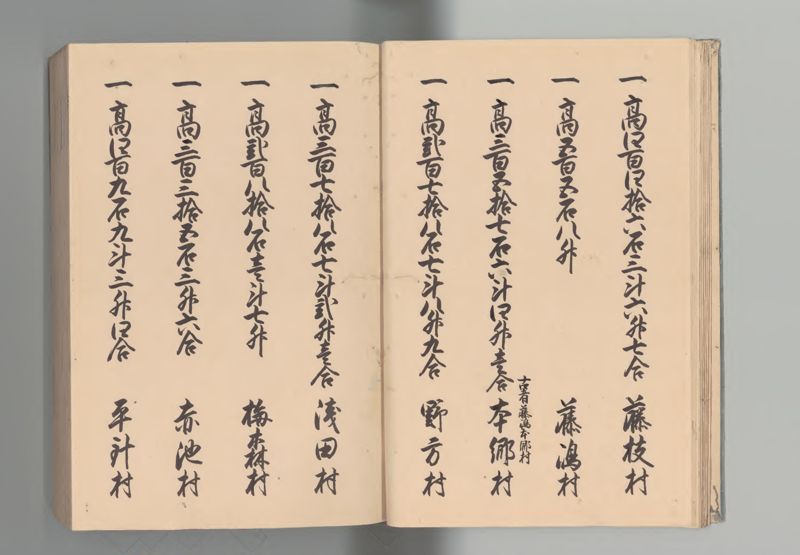 一高四百四拾六石三斗六升七合 藤枝村
一高五百五石八升 藤嶋村
一高三百五拾七石六斗四升壹合 本郷村
古者藤嶋本郷村
一高貳百七拾八石七斗八升九合 野方村
一高三百七拾八石七斗貳升壹合 浅田村
一高貳百八拾八石壹斗七升 梅森村
一高三百三拾五石三升六合 赤池村
一高四百九石九斗三升四合 平針村